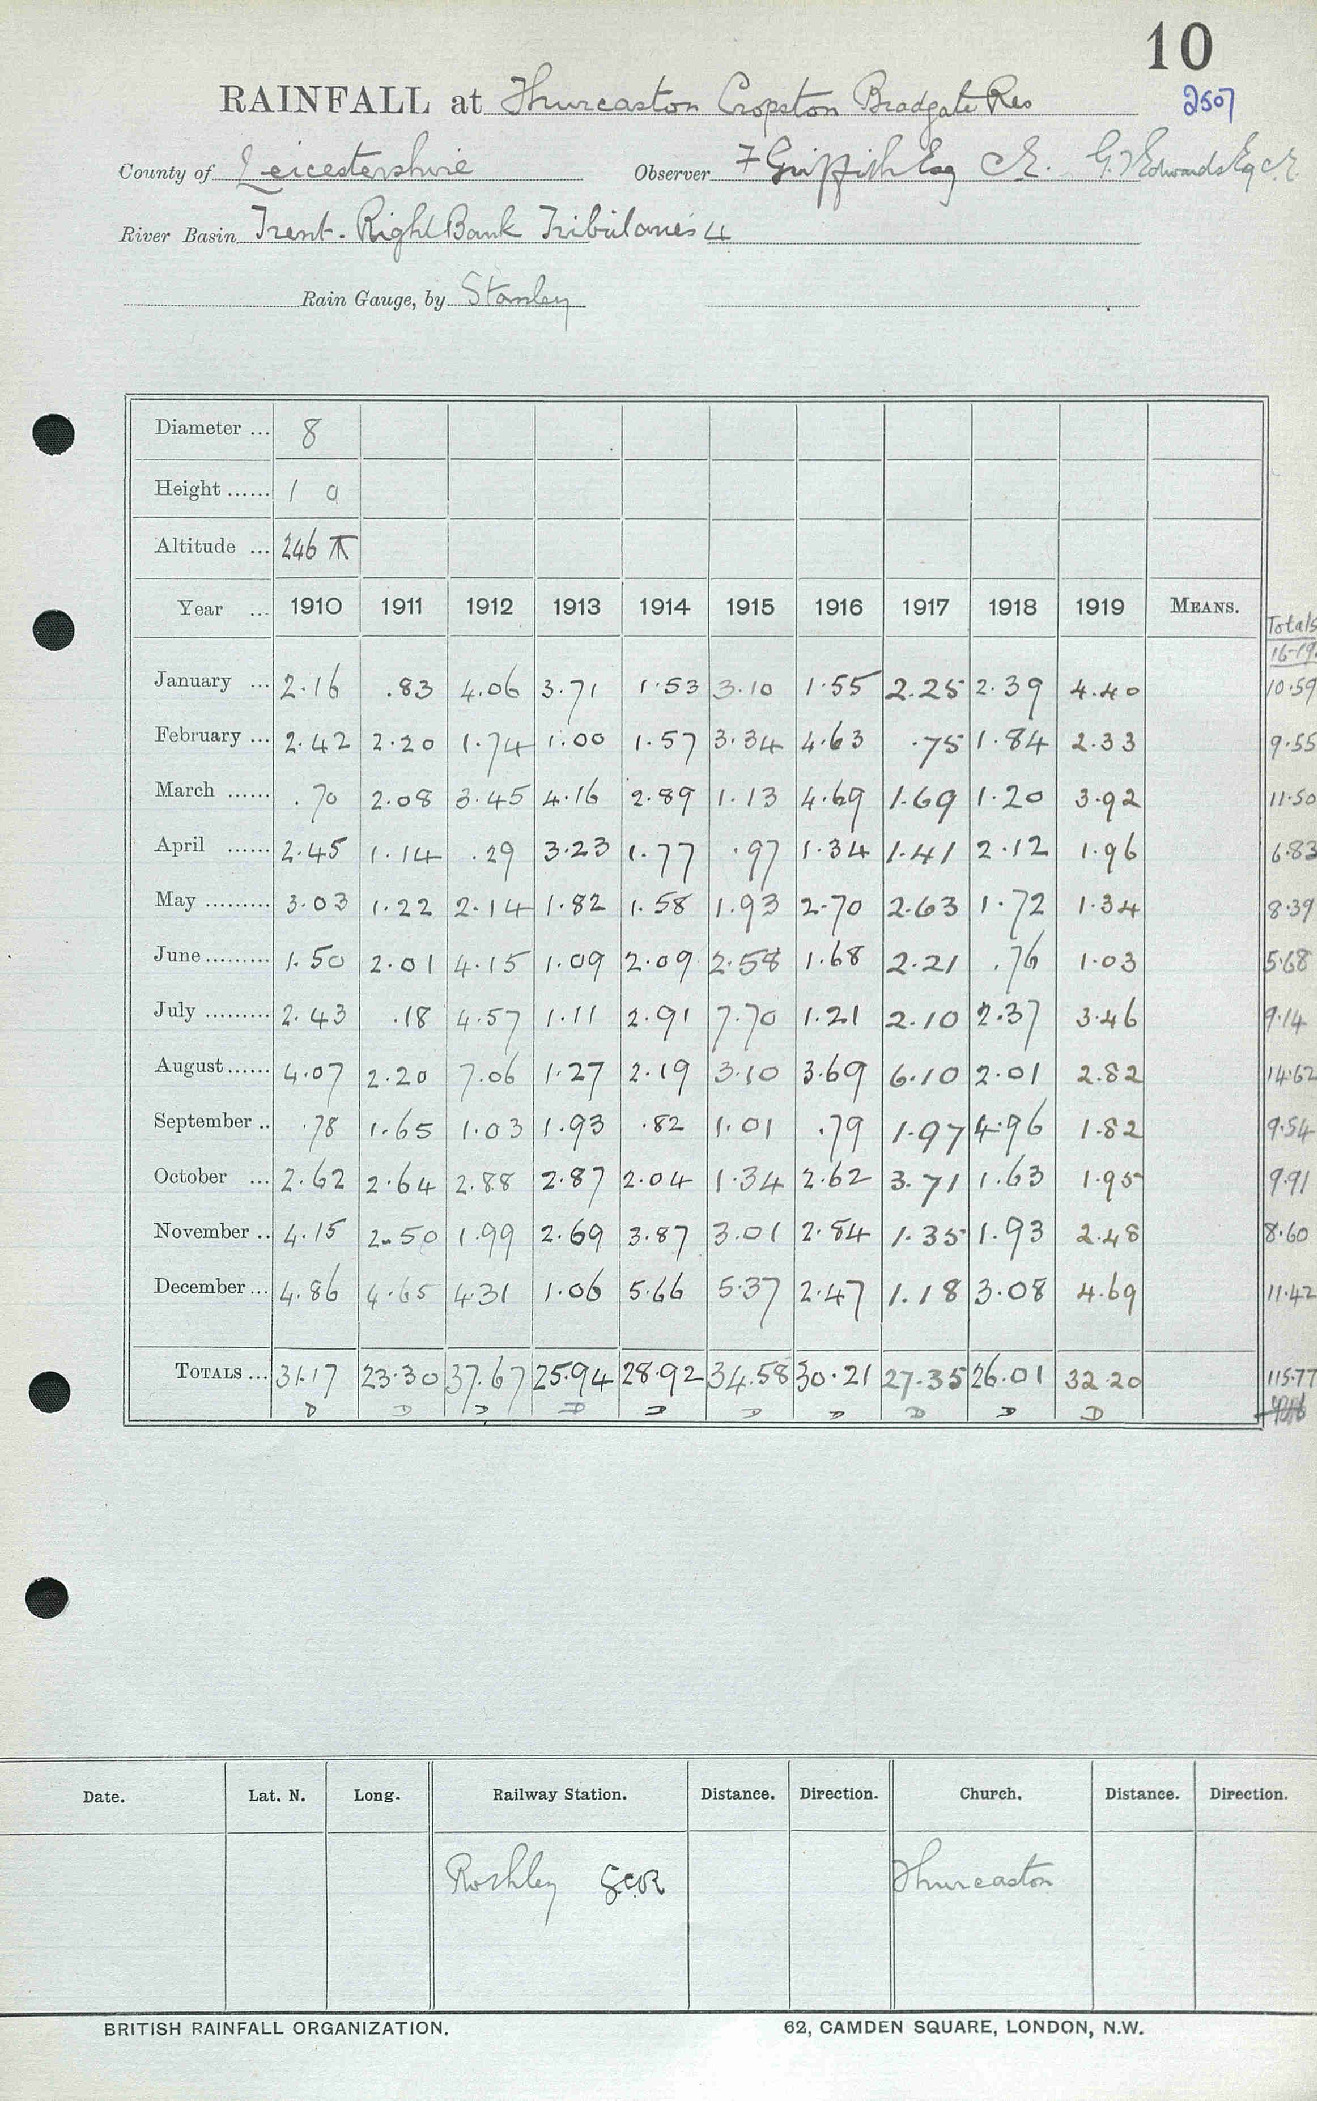 10
RAINFALL at Thurcaston Cropston Bradgate Res 2507
County of Leicestershire Observer F Griffith Esq C.E. G. T Edwards Esq C.E.
River Basin Trent - Right Bank Tributaries 4
Rain Gauge, by Stanley
Diameter ... 8
Height ...... 1 0
Altitude ... 246
Year ... 1910 1911 1912 1913 1914 1915 1916 1917 1918 1919 MEANS. Totals
16-19.
January ... 2.16 .83 4.06 3.71 1.53 3.10 1.55 2.25 2.39 4.40 10.59
February ... 2.42 2.20 1.74 1.00 1.57 3.34 4.63 .75 1.84 2.33 9.55
March ...... .70 2.08 3.45 4.16 2.89 1.13 4.69 1.69 1.20 3.92 11.50
April ...... 2.45 1.14 .29 3.23 1.77 .97 1.34 1.41 2.12 1.96 6.83
May ......... 3.03 1.22 2.14 1.82 1.58 1.93 2.70 2.63 1.72 1.34 8.39
June ......... 1.50 2.01 4.15 1.09 2.09 2.58 1.68 2.21 .76 1.03 5.68
July ......... 2.43 .18 4.57 1.11 2.91 7.70 1.21 2.10 2.37 3.46 9.14
August ...... 4.07 2.20 7.06 1.27 2.19 3.10 3.69 6.10 2.01 2.82 14.62
September .. .78 1.65 1.03 1.93 .82 1.01 .79 1.97 4.96 1.82 9.54
October ... 2.62 2.64 2.88 2.87 2.04 1.34 2.62 3.71 1.63 1.95 9.91
November .. 4.15 2.50 1.99 2.69 3.87 3.01 2.84 1.35 1.93 2.48 8.60
December ... 4.86 4.65 4.31 1.06 5.66 5.37 2.47 1.18 3.08 4.69 11.42
TOTALS ... 31.17 23.30 37.67 25.94 28.92 34.58 30.21 27.35 26.01 32.20 115.77
D D D D D D D D D D
Date. Lat. N. Long. Railway Station. Distance. Direction. Church. Distance. Direction.
Rothley GCR Thurcaston
BRITISH RAINFALL ORGANIZATION. 62, CAMDEN SQUARE, LONDON, N.W.